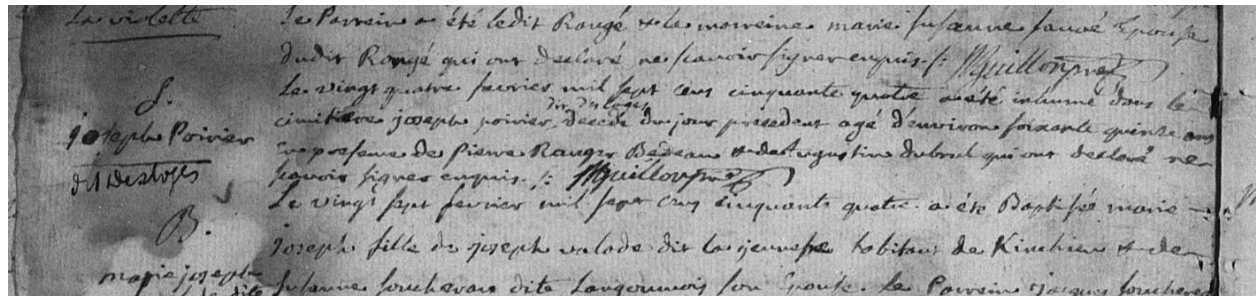 La violette
le Parrein a été ledit Rangé & la marreine marie susanne sauvé Epouse
dudit Rangé qui ont declaré ne scavoir signer enquis /: MGuillon pre
S.
joseph Poirier
dit Desloges
Le vingt quatre fevrier mil sept cens cinquante quatre a été inhumé dans le
cimitiere joseph poirier dit des loges decedé du jour precedent agé d'environ soixante quinze ans
en presence de Pierre Ranger Bedeau & de augustin dubreul qui ont declaré ne
scavoir signer enquis. /: MGuillon pre
B.
marie joseph
Le vingt sept fevrier mil sept cens cinquante quatre a été Baptisée marie
joseph fille de joseph valade dit la jeunesse habitant de Kinchien & de
susanne foucherau dite Langoumois son Epouse. Le Parrein jacques fouchereau